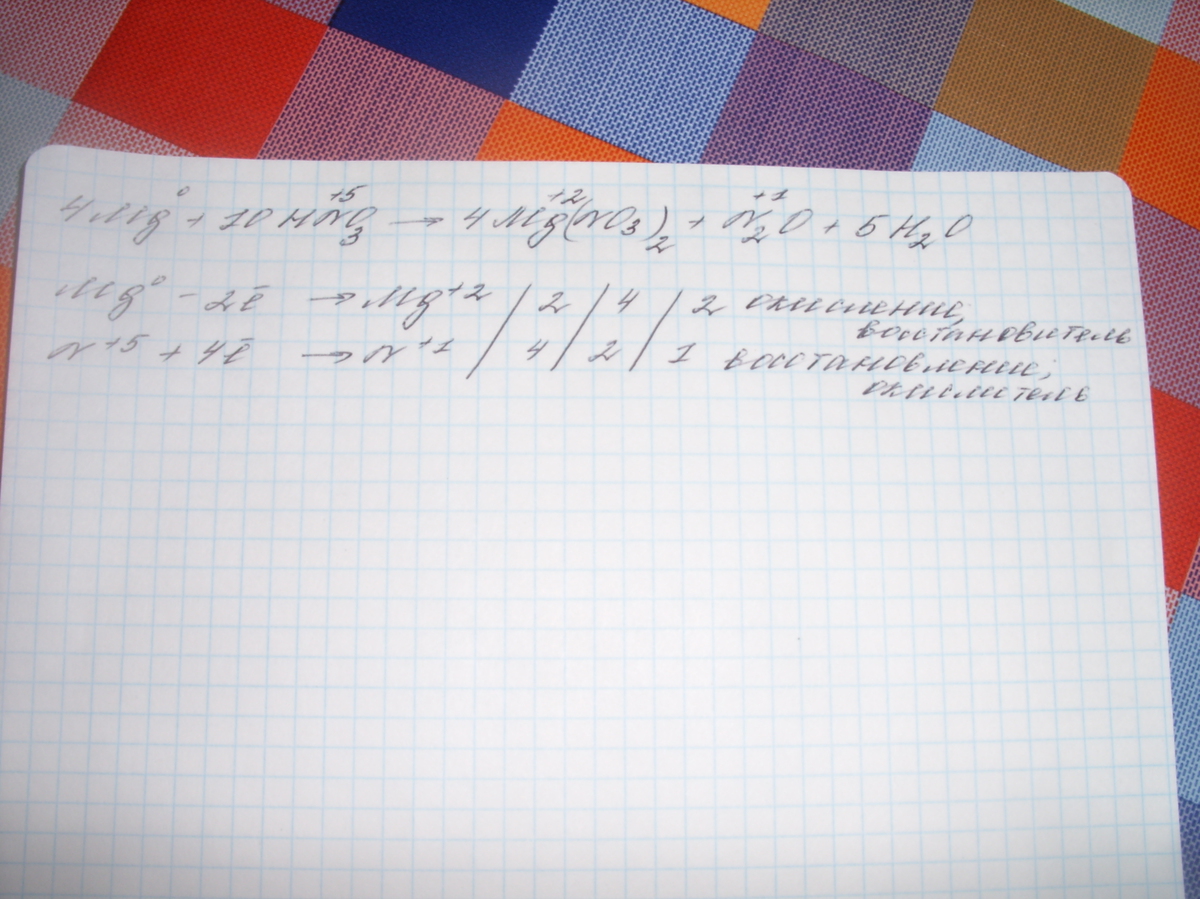 4Mg⁰ + 10HN⁺⁵O₃ → 4Mg⁺²(NO₃)₂ + N₂⁺¹O + 5H₂O
Mg⁰ - 2ē → Mg⁺² / 2 / 4 / 2 окисление,
восстановитель
N⁺⁵ + 4ē → N⁺¹ / 4 / 2 / 1 восстановление;
окислитель